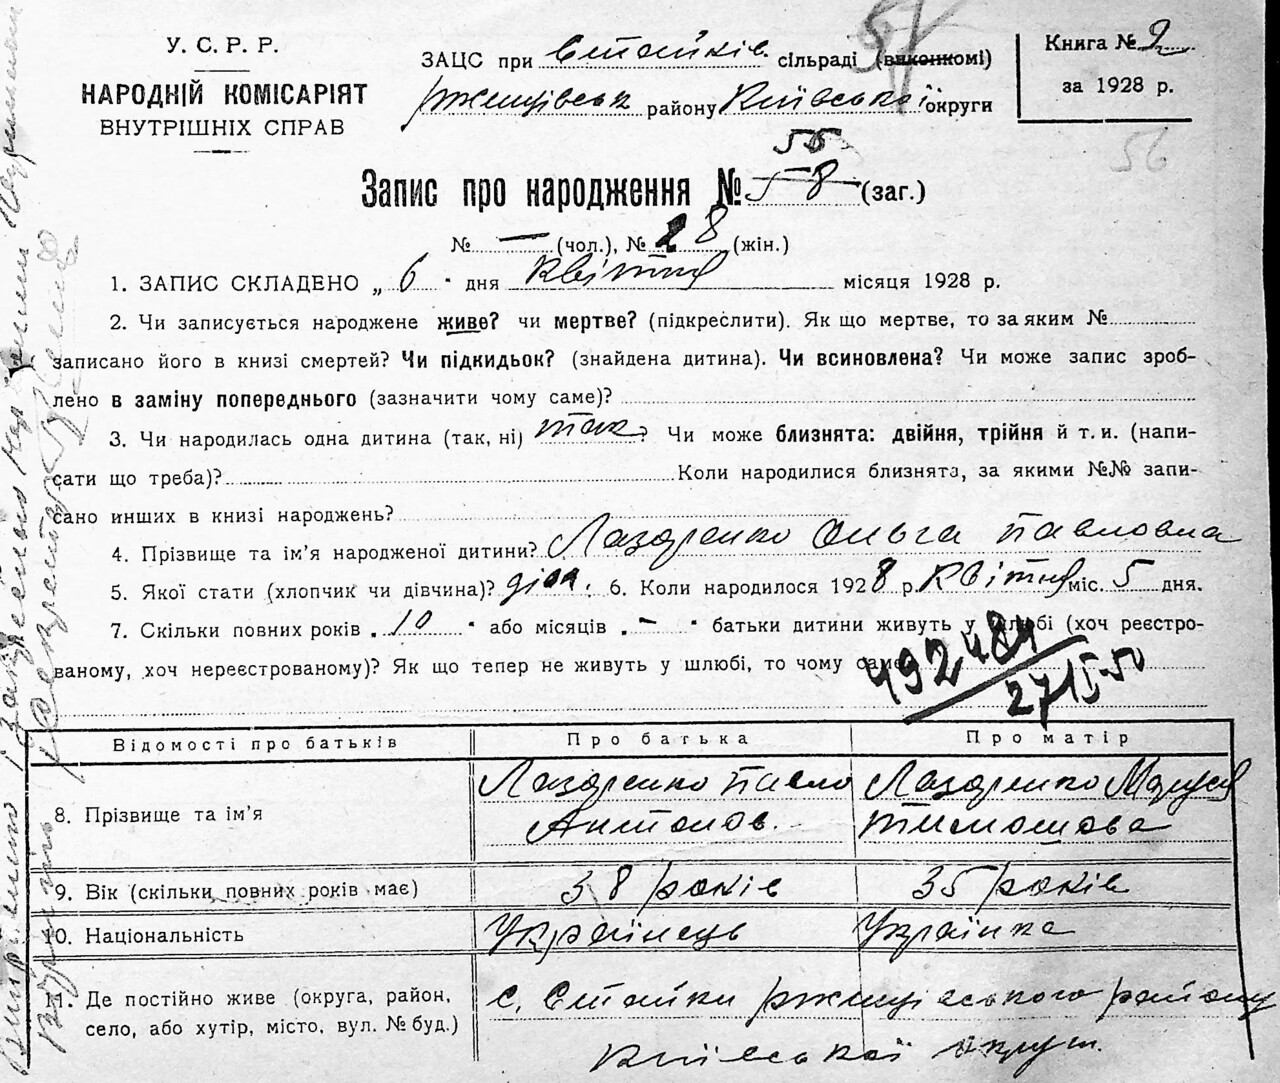 У. С. Р. Р.
НАРОДНІЙ КОМІСАРІЯТ
ВНУТРІШНІХ СПРАВ
ЗАЦС при Стайків. сільраді (виконкомі)
Ржищівськ району Київської округи
57
Книга № 2
за 1928 р.
56
55
Запис про народження № 58 (заг.)
№ — (чол.), № 28 (жін.)
1. ЗАПИС СКЛАДЕНО „ 6 " дня Квітня місяця 1928 р.
2. Чи записується народжене живе? чи мертве? (підкреслити). Як що мертве, то за яким №
записано його в книзі смертей? Чи підкидьок? (знайдена дитина). Чи всиновлена? Чи може запис зроб-
лено в заміну попереднього (зазначити чому саме)?
3. Чи народилась одна дитина (так, ні) так? Чи може близнята: двійня, трійня й т. и. (напи-
сати що треба)? Коли народилися близнята, за якими №№ запи-
сано инших в книзі народжень?
4. Прізвище та ім'я народженої дитини? Лазаренко Ольга Павловна
5. Якої стати (хлопчик чи дівчина)? дівч. 6. Коли народилося 1928 р. Квітня міс. 5 дня.
7. Скільки повних років „ 10 " або місяців „ — " батьки дитини живуть у шлюбі (хоч реєстро-
ваному, хоч нереєстрованому)? Як що тепер не живуть у шлюбі, то чому саме
492484
27 15-50
Відомості про батьків Про батька Про матір
8. Прізвище та ім'я
Лазаренко Павло
Антонов.
Лазаренко Маруся
Тимошова
9. Вік (скільки повних років має) 38 років 35 років
10. Національність Українець Українка
11. Де постійно живе (округа, район,
село, або хутір, місто, вул. № буд.)
с. Стайки Ржищівського району
Київської округи.